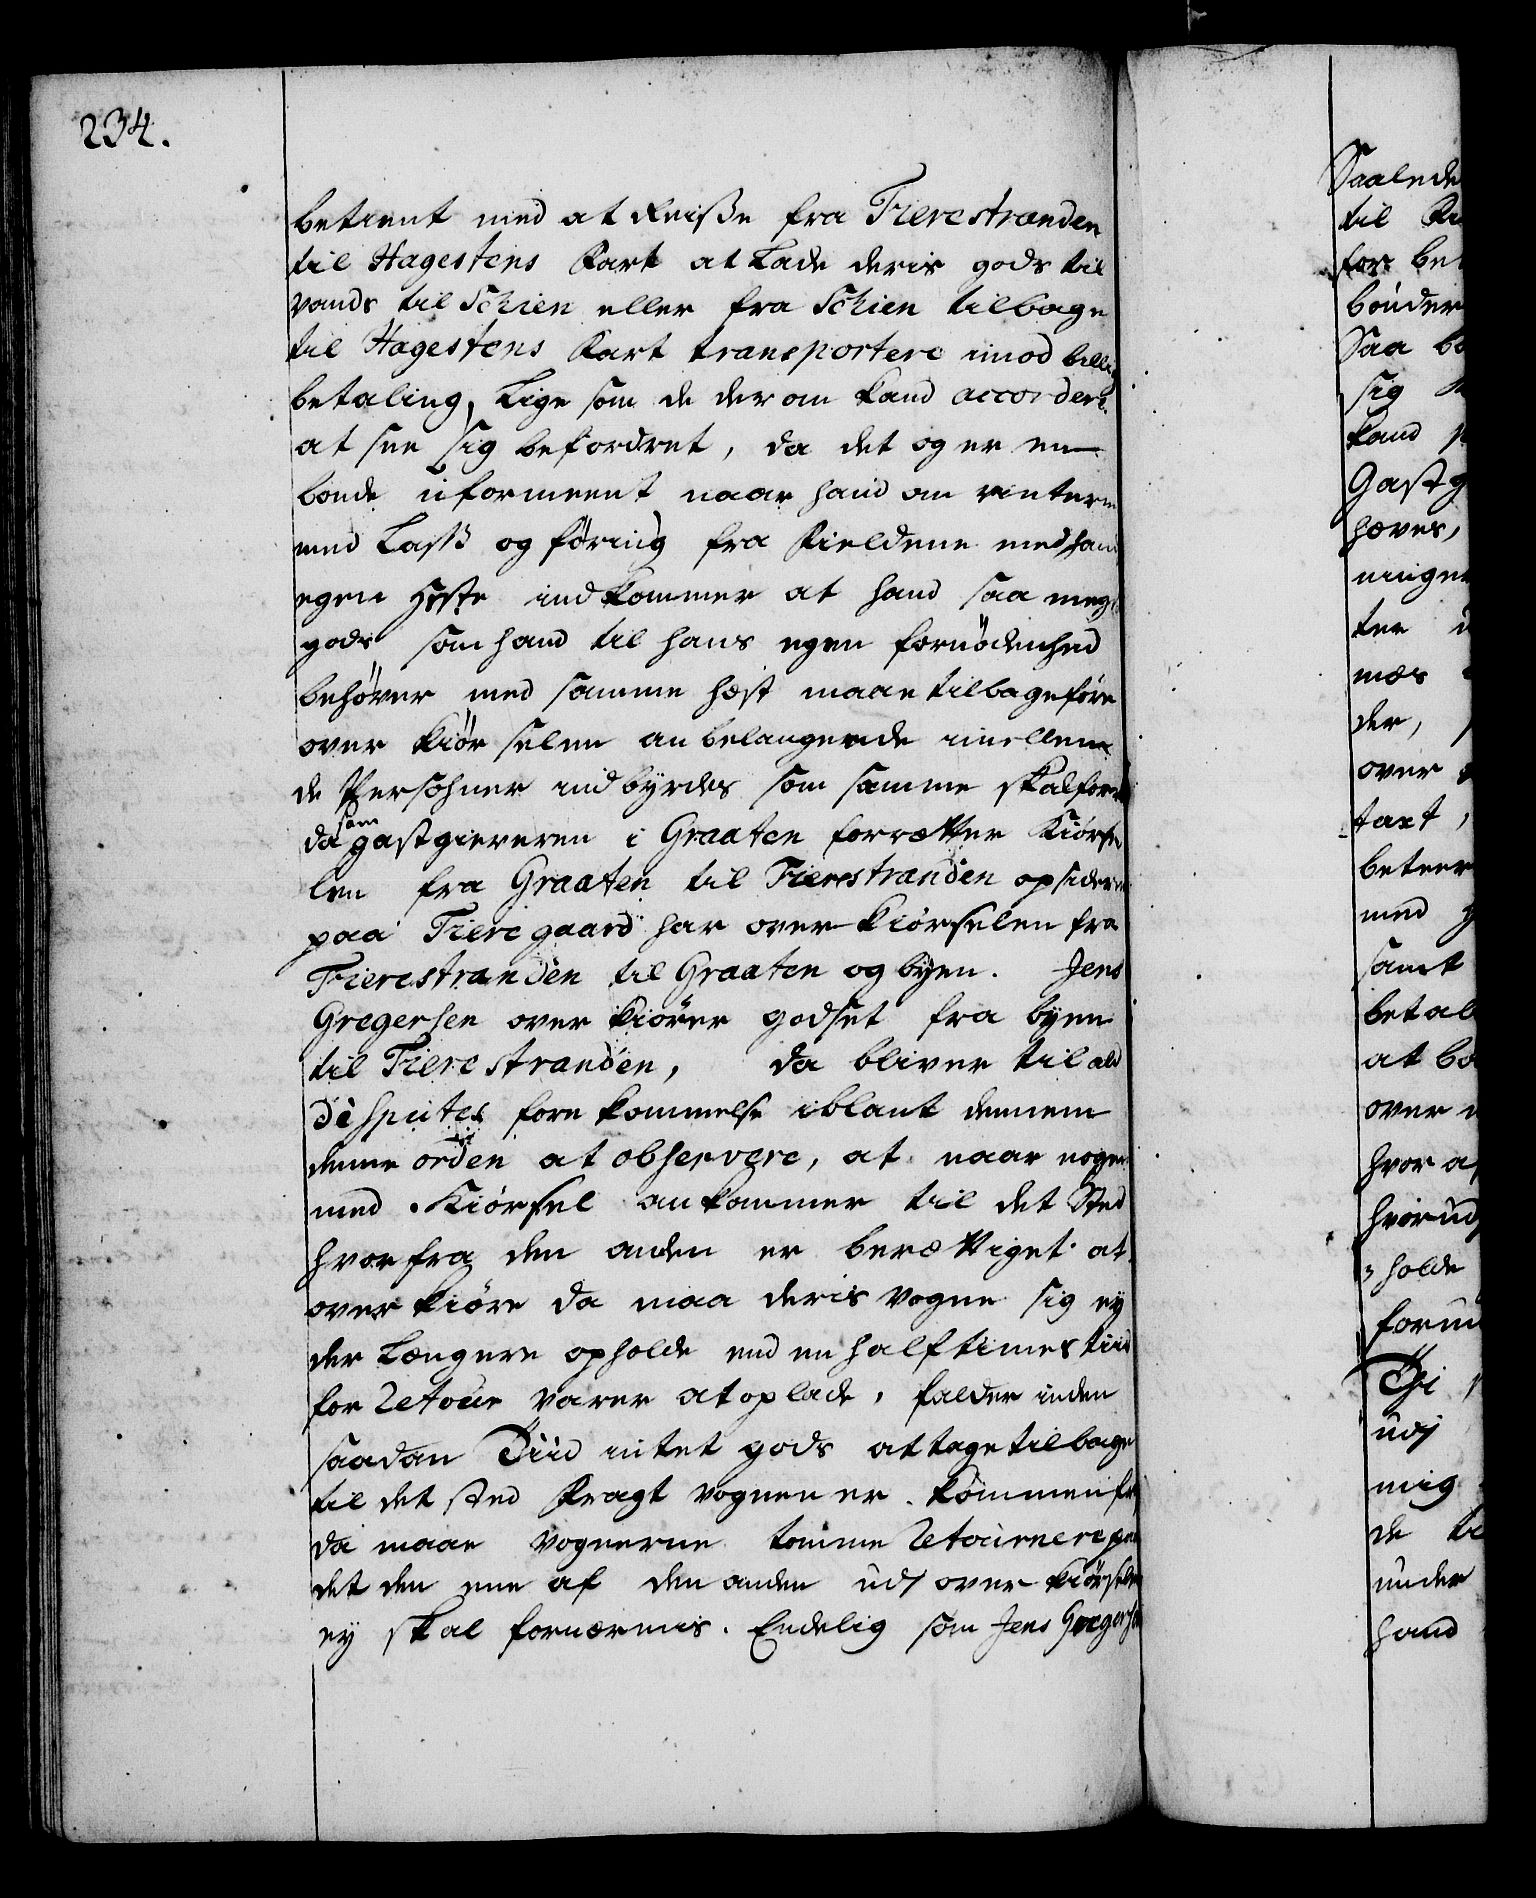 234.
betient med at Reiße fra Fierestranden
til Hagestens Kart at Lade deris gods til
vands til Schien eller fra Schien tilbage
til Hagestens Kart transportere imod billig
betaling, Lige som de derom kand accordere
at see sig befordret, da det og er en
bonde uformeent naar hand om vinteren
med Lass og føring fra Fieldene med hans
egen Heste indkommer at hand saa meget
gods som hand til hans egen fornødenhed
behøver med samme hest maae tilbageføre
over kiørselen anbelangende imellem
de Persohner indbyrdes som samme skal
da som gastgieveren i Graaten forrætter Kiørse
len fra Graaten til Fierestranden opsideren
paa Fieregaard har over kiørselen fra
Fierestranden til Graaten og byen. Jens
Gregersen over kiører godset fra byen
til Fierestranden, da bliver til all
Disputes forekommelse iblant dennem
denne orden at observere, at naar nogen
med Kiørsel ankommer til det Sted
hvorfra den anden er berættiget at
over kiøre da maa deris vogne sig ey
der Længere opholde end en half times tiid
for Retour varer at oplade, falder inden
saadan Tiid intet gods at tage tilbage
til det sted Fragt vognen er kommen fra
da maae vognerne tomme Retournere paa
det den ene af den anden udj over kiørselen
ey skal fornærmis. Endelig som Jens Gregersen
Saalede
til
for be
bönder
Saa
sig
kand
Gastg
hæves,
ninge
ter
mes
der,
over
taxt,
beteer
med
samt
betal
at
over
hvor
hvorud
holde
forun
Thi
udj
mig
de
under
hand